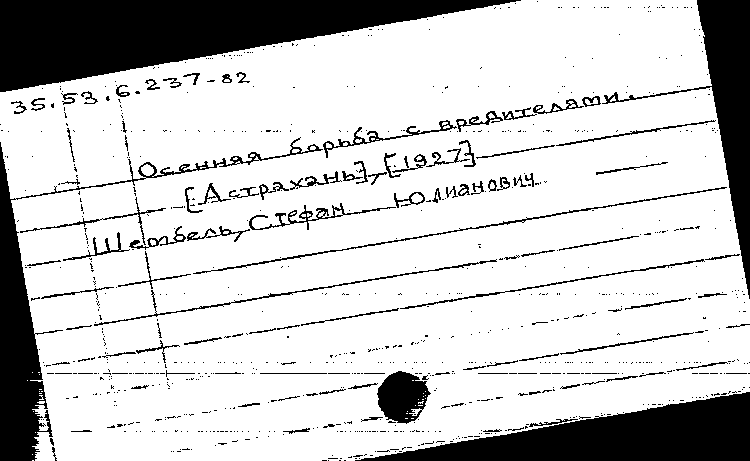 35.53.6.237-82
Осенняя борьба с вредителями.
[Астрахань], [1927]
Штобель, Стефан Юлианович